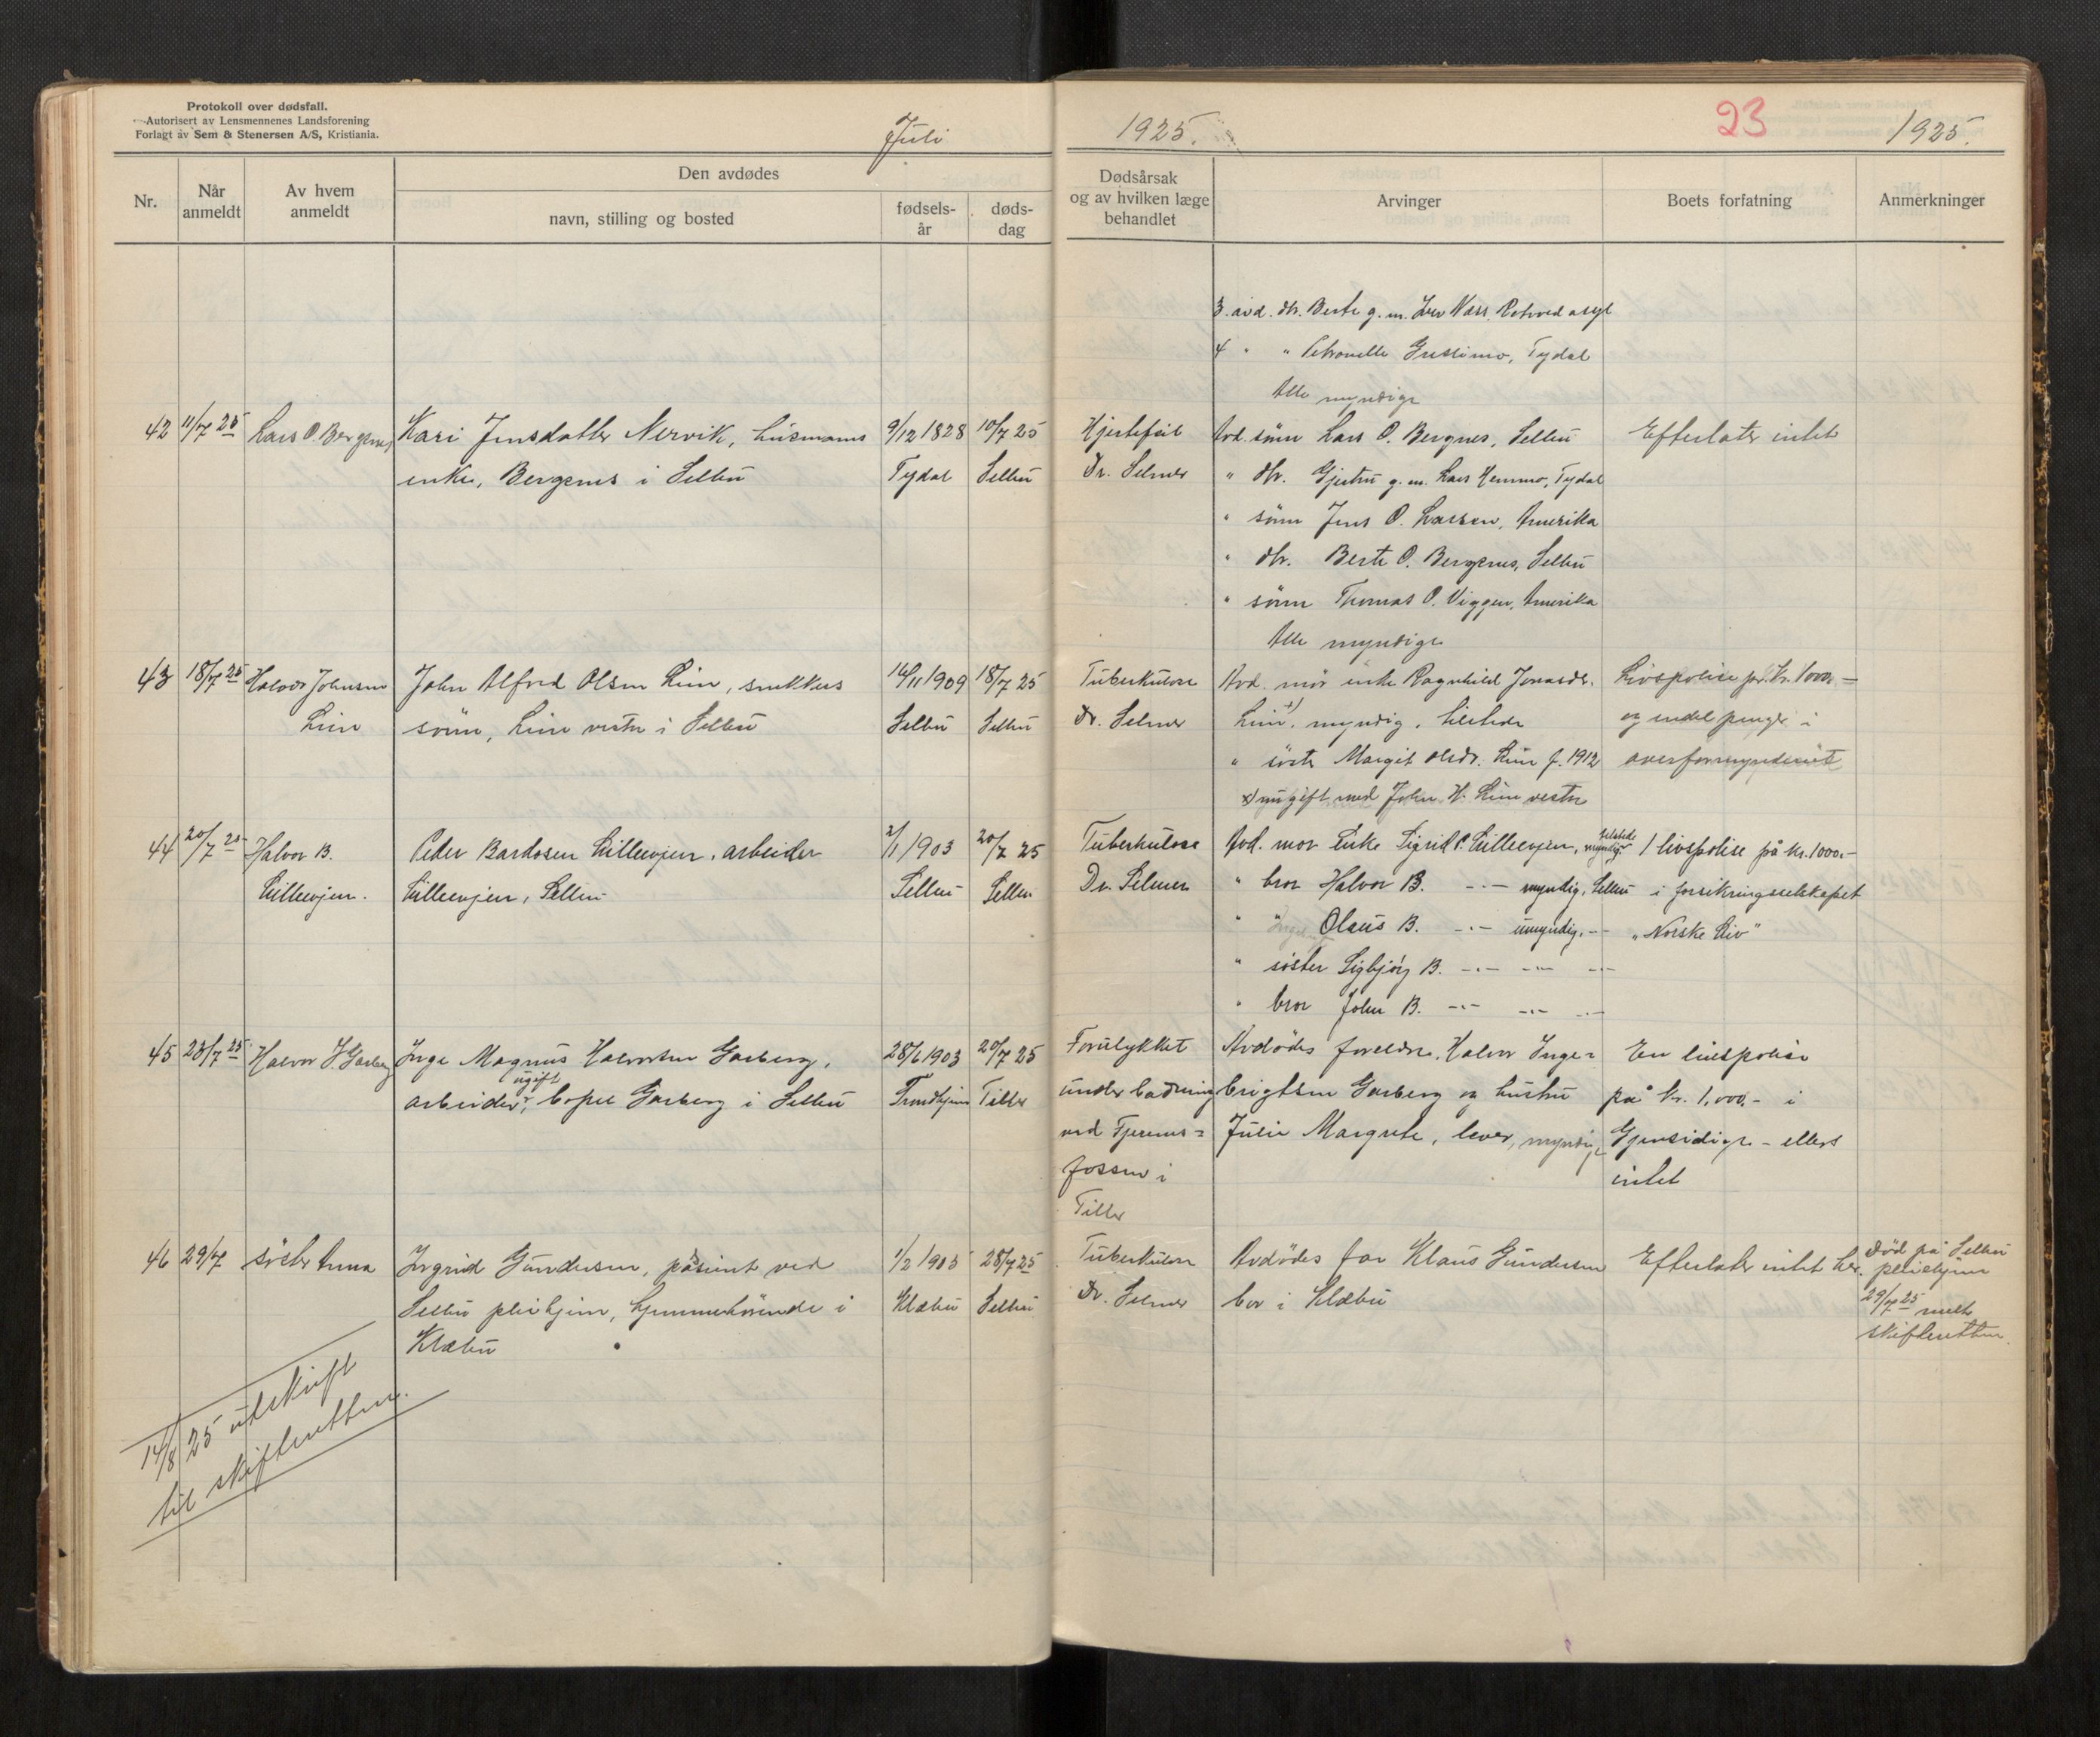 Protokoll over dødsfall.
Autorisert av Lensmennenes Landsforening
Forlagt av Sem & Stenersen A/S, Kristiania.
Juli
1925.
23
1925.
Nr.
Når anmeldt
Av hvem anmeldt
Den avdødes
navn, stilling og bosted
fødsels-år
døds-dag
Dødsårsak og av hvilken læge behandlet
Arvinger
Boets forfatning
Anmerkninger
3. avd. dtr. Berte g. m. Næss Rotvod asyl
4 " " Petronelle Græslimo, Tydal
Alle myndige
42 11/7 25 Lars O. Bergsnes
Kari Jensdatter Nervik, husmanns
enke, Bergsnes i Selbu
9/12 1828 Tydal
10/7 25 Selbu
Hjertefeil
Dr. Selmer
Avd. sønn Lars O. Bergnes, Selbu
" dtr. Gjertru g. m. Lars Hemmo, Tydal
" sønn Jens O. Larssen, Amerika
" dtr. Berte O. Bergsnes, Selbu
" sønn Thomas O. Viggen, Amerika
Alle myndige
Efterlater intet
43 18/7 25 Halvor Johnsen
Lien
John Alfred Olsen Lien, snekkers
sønn, Lien vestre i Selbu
16/11 1909 Selbu
18/7 25 Selbu
Tuberkulose
Dr. Selmer
Avd. mor enke Ragnhild Jonasdr.
Lien x), myndig, tilstede
" søster Margit Olsdr. Lien f. 1912
x) nygift med John H. Lien vestre
Livspolise pd. kr. 1000,-
og endel penger i
overformynderiet
44 20/7 25 Halvor B.
Lilleevjen.
Peder Bardosen Lilleevjen, arbeider
Lilleevjen, Selbu
2/1 1903 Selbu
20/7 25 Selbu
Tuberkulose
Dr. Selmer
Avd. mor Enke Sigrid P. Lilleevjen, tilstede myndig
" bror Halvor B. -"- myndig, Selbu
" " Olaus B. -"- umyndig, -"-
" søster Sigbjørg B. -"- -"- -"-
" bror John B. -"- -"- -"-
1 livspolise på kr. 1000.-
i forsikringsselskapet
"Norske Liv"
45 23/7 25 Halvor J. Garberg
Inge Magnus Halvorsen Garberg,
arbeider, ugift, bopel Garberg i Selbu
28/6 1903 Trondhjem
20/7 25 Tiller
Forulykket
under badning
ved Tjerems-
fossen i
Tiller
Avdødes foreldre, Halvor Inge-
brigtsen Garberg og hustru
Julie Margrete, lever, myndige
En livspolise
på kr. 1.000,- i
Gjensidige - ellers
intet
46 29/7 søster Anna
Ingrid Gundersen, pasient ved
Selbu pleihjem, hjemmehørende i
Klæbu
1/2 1905 Klæbu
28/7 25 Selbu
Tuberkulose
Dr. Selmer
Avdødes far Klaus Gundersen
bor i Klæbu
Efterlater intet her.
Død på Selbu
pleiehjem
29/7 25 meldt
skifteretten.
14/8 25 utskrift
til skifteretten.